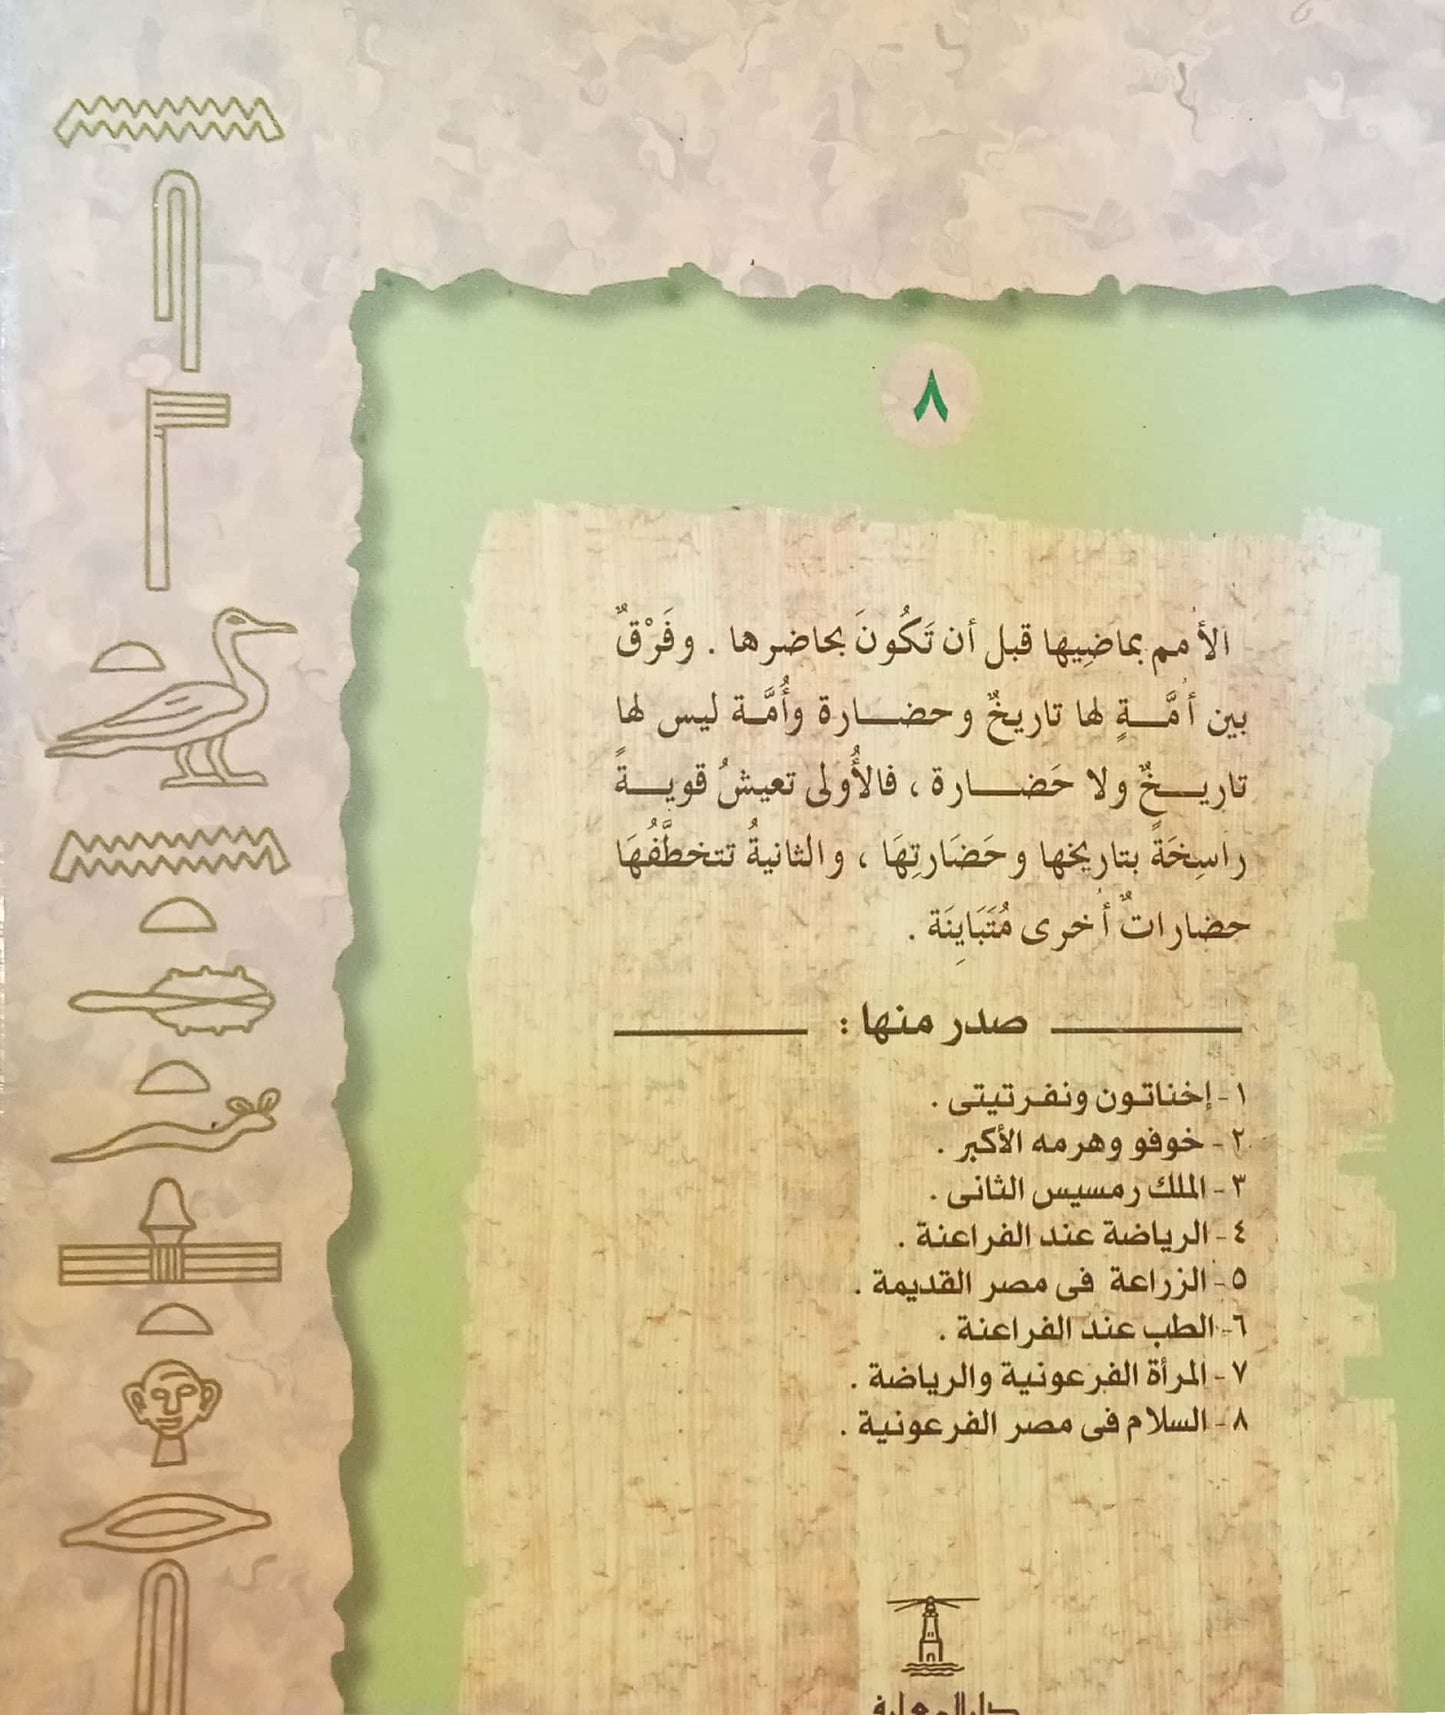 ٨
الأمم بماضِيها قبل أن تَكُونَ بحاضرها . وفَرْقٌ
بين أُمَّـــةٍ لها تاريخٌ وحضـــارة وأُمَّـة ليس لها
تاريـــخٌ ولا حَضـــــارة ، فالأُولى تعيشُ قويـــةً
راسِخَةً بتاريخها وحَضَارتِهَا ، والثانيةُ تتخطَّفُهَا
حضاراتٌ أُخرى مُتَبَايِنَة .
صدر منها :
١- إخناتون ونفرتيتى .
٢- خوفو وهرمه الأكبر .
٣- الملك رمسيس الثانى .
٤- الرياضة عند الفراعنة .
٥- الزراعة فى مصر القديمة .
٦- الطب عند الفراعنة .
٧- المرأة الفرعونية والرياضة .
٨- السلام فى مصر الفرعونية .
دار المعارف